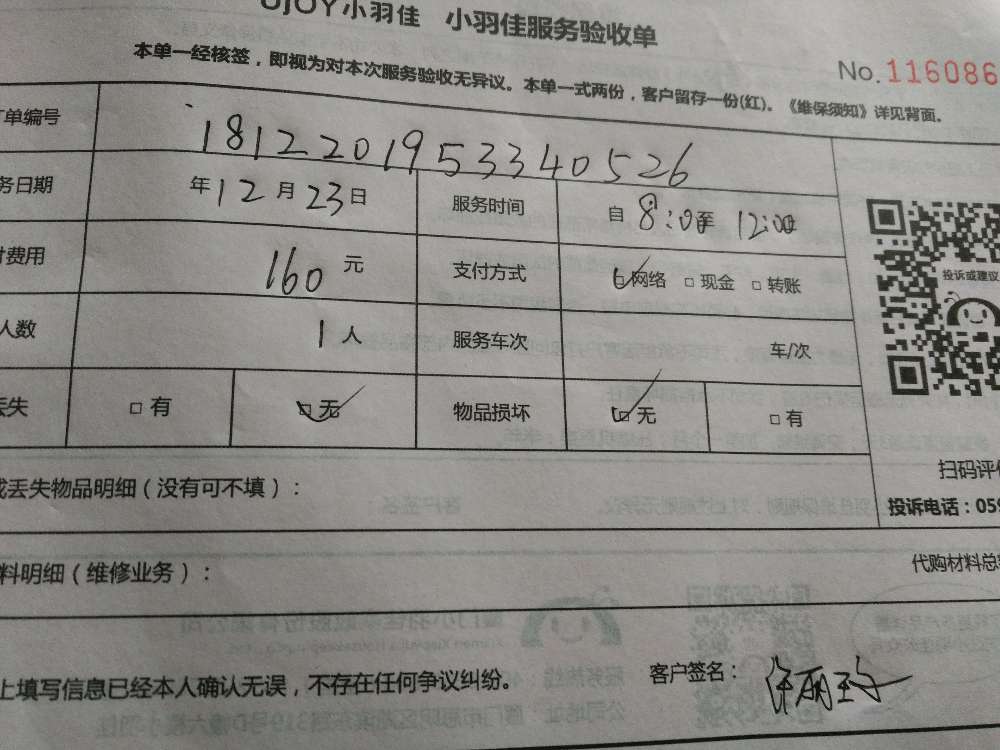 UJOY小羽佳 小羽佳服务验收单
本单一经核签，即视为对本次服务验收无异议。本单一式两份，客户留存一份(红)。《维保须知》详见背面。
No. 116086
订单编号 181220195334 0526
务日期 年12月23日 服务时间 自8:00至12:00
费用 160元 支付方式 □网络 □现金 □转账
投诉或建议
人数 1人 服务车次 车/次
丢失 □有 □无 物品损坏 □无 □有
扫码评价
或丢失物品明细（没有可不填）：
投诉电话：059
料明细（维修业务）：
代购材料总
上填写信息已经本人确认无误，不存在任何争议纠纷。
客户签名：